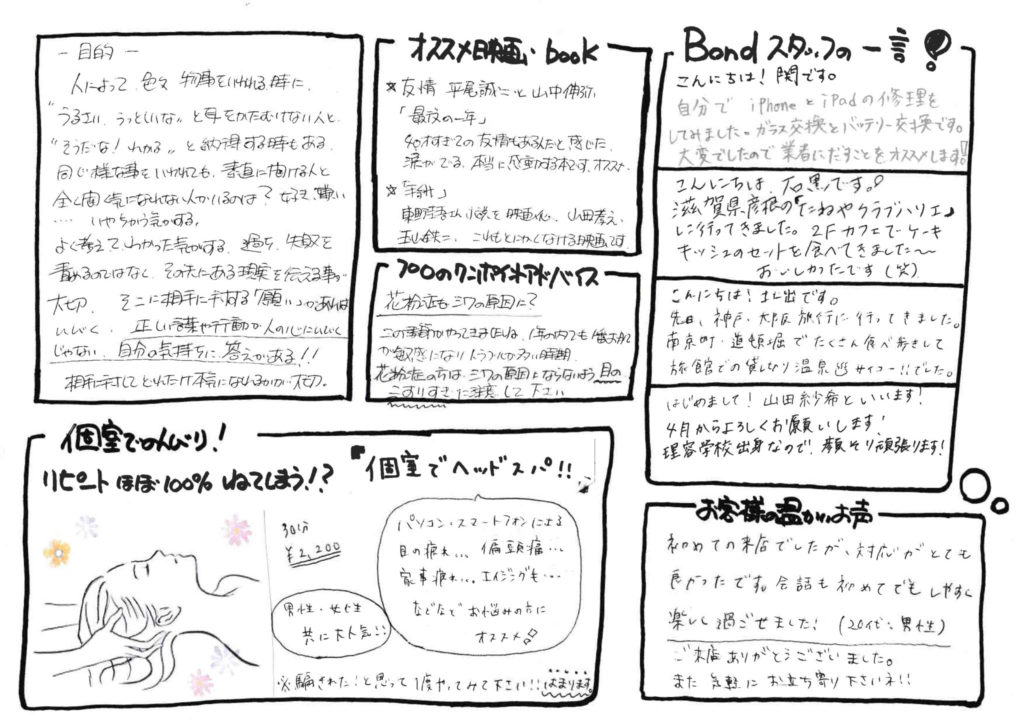 - 目的 -
人によって、色々 物事をいわれる時に、
"うるさい、うっとしいな"と耳をかたむけない人と、
"そうだな！わかる"と納得する時もある。
同じ様な事をいわれても、素直に聞ける人と
全く聞く気になれない人がいるのは？なぜ、嫌い
… いやちがう気がする。
よく考えてわかった気がする、過ち、失敗を
責めるのではなく、その先にある現実を伝える事が
大切、そこに相手に対する「願い」があれば
いいく、正しい言葉や行動が人の心にいいく
じゃない、自分の気持ちに、答えがある!!
相手に対してどれだけ本気になれるかが大切。
オススメ映画・book
☆友情 平尾誠二と山中伸弥
「最後の一年」
40才すぎての友情もあるんだと感じた、
涙がでる、本当に感動する本です、オススメ
☆「手紙」
東野圭吾さん小説を映画化、山田孝之、
玉山鉄二、これもとにかくなける映画です
プロのワンポイントアドバイス
花粉症もシワの原因に？
この季節がやってきましたね、
が敏感になりトラブルが多い時期
花粉症の方は、シワの原因とならないよう目の
こすりすぎに注意して下さい
Bondスタッフの一言！
こんにちは！関です。
自分で iPhoneとiPadの修理を
してみました。ガラス交換とバッテリー交換です。
大変でしたので業者にだすことをオススメします！
こんにちは、石黒です。！
滋賀県彦根の「たねやクラブハリエ」
に行ってきました。2Fカフェでケーキ
キッシュのセットを食べてきました〜
おいしかったです（笑）
こんにちは！土出です。
先日、神戸、大阪旅行に行ってきました。
南京町・道頓堀でたくさん食べ歩きして
旅館での貸しきり温泉がサイコー!!でした。
はじめまして！山田紗希といいます！
4月からよろしくお願いします！
理容学校出身なので、顔そり頑張ります！
個室でのんびり！
リピートほぼ100% ねてしまう!?
「個室でヘッドスパ!!」
30分
¥2,200
男性・女性
共に大人気!!
パソコン・スマートフォンによる
目の疲れ… 偏頭痛…
家事疲れ… エイジングも…
などなどお悩みの方に
オススメ！
※騙された！と思って1度やってみて下さい!! はまります。
お客様の温かいお声
初めての来店でしたが、対応がとても
良かったです。会話も初めてでもしやすく
楽しく過ごせました！（20代、男性）
ご来店ありがとうございました。
また気軽にお立ち寄り下さいネ!!